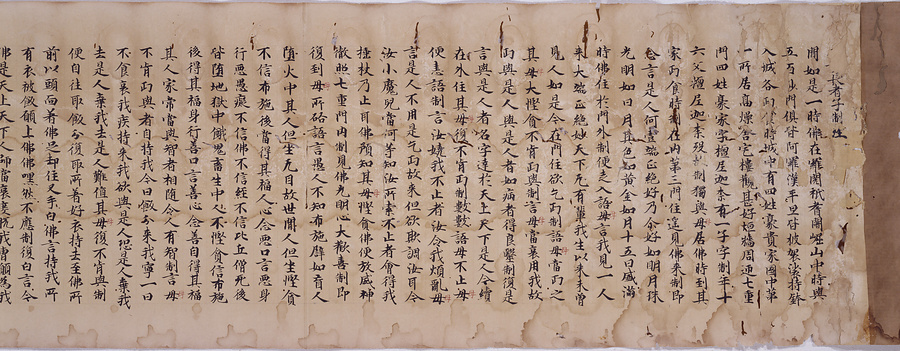 長者子制經
聞如是一時佛在羅閱祇耆闍崛山中時與
五百沙門俱皆阿羅漢平旦皆被袈裟持鉢
入城各丐 時城中有四姓豪貴家國中第
一所居高燥舍宅樓觀甚好垣牆周迊七重
門四姓豪家字擅尼迦柰有一子字制年十
六父擅尼迦柰 制獨與母居佛時到其
家丙食時制在內第三門住遙見佛來制即
念言是人何 端正絕好乃尒好如明月珠
光明如日月且色如黃金如月十五日盛滿
時佛住於門外制便走入語母言我見一人
來大端正絕妙天下无有雙我生以來未曾
見人如是今在門住欲乞丐制語母當丐之
其母大慳貪不肯丐制言母當哀用我故
丐與是人與是人者如病者得良醫制復是
言與是人者名字達於天上天下是人今續
在外住其母復不肯丐制數數語母不止母
便恚語制言汝嬈我不止者汝令我煩亂母
言是人不用是乞丐故來但欲 調汝耳今
汝小魔兒當何等知汝所索不止者會得我
捶杖乃止耳佛預知其母慳貪佛便放威神
徹照七重門內制見佛光明心大歡喜制即
復到母所 語言愚人不知布施譬如盲人
墮火中其人但坐无目故世閒人但坐慳貪
不信布施後當得其福人心念惡口言惡身
行惡愚癡不信佛不信經不信比丘僧死後
皆墮地獄中餓鬼畜生中人不慳貪信布施
後得其福身行善口言善心念善自得其福
其人家常當與智者相隨今人有智制言母
不肯丐與者自持我今日飯分來我寧一日
不食莫我疾持來我欲與是人 是人棄我
去是人棄我去是人難值其母復不肯與制
便自往取飯分復取所著好衣持去至佛所
前以頭面著佛足却住叉手白佛言持我所
有衣被飯願上佛佛嘿然不應制復白言今
佛是天上天下人師當哀 我曹願為我